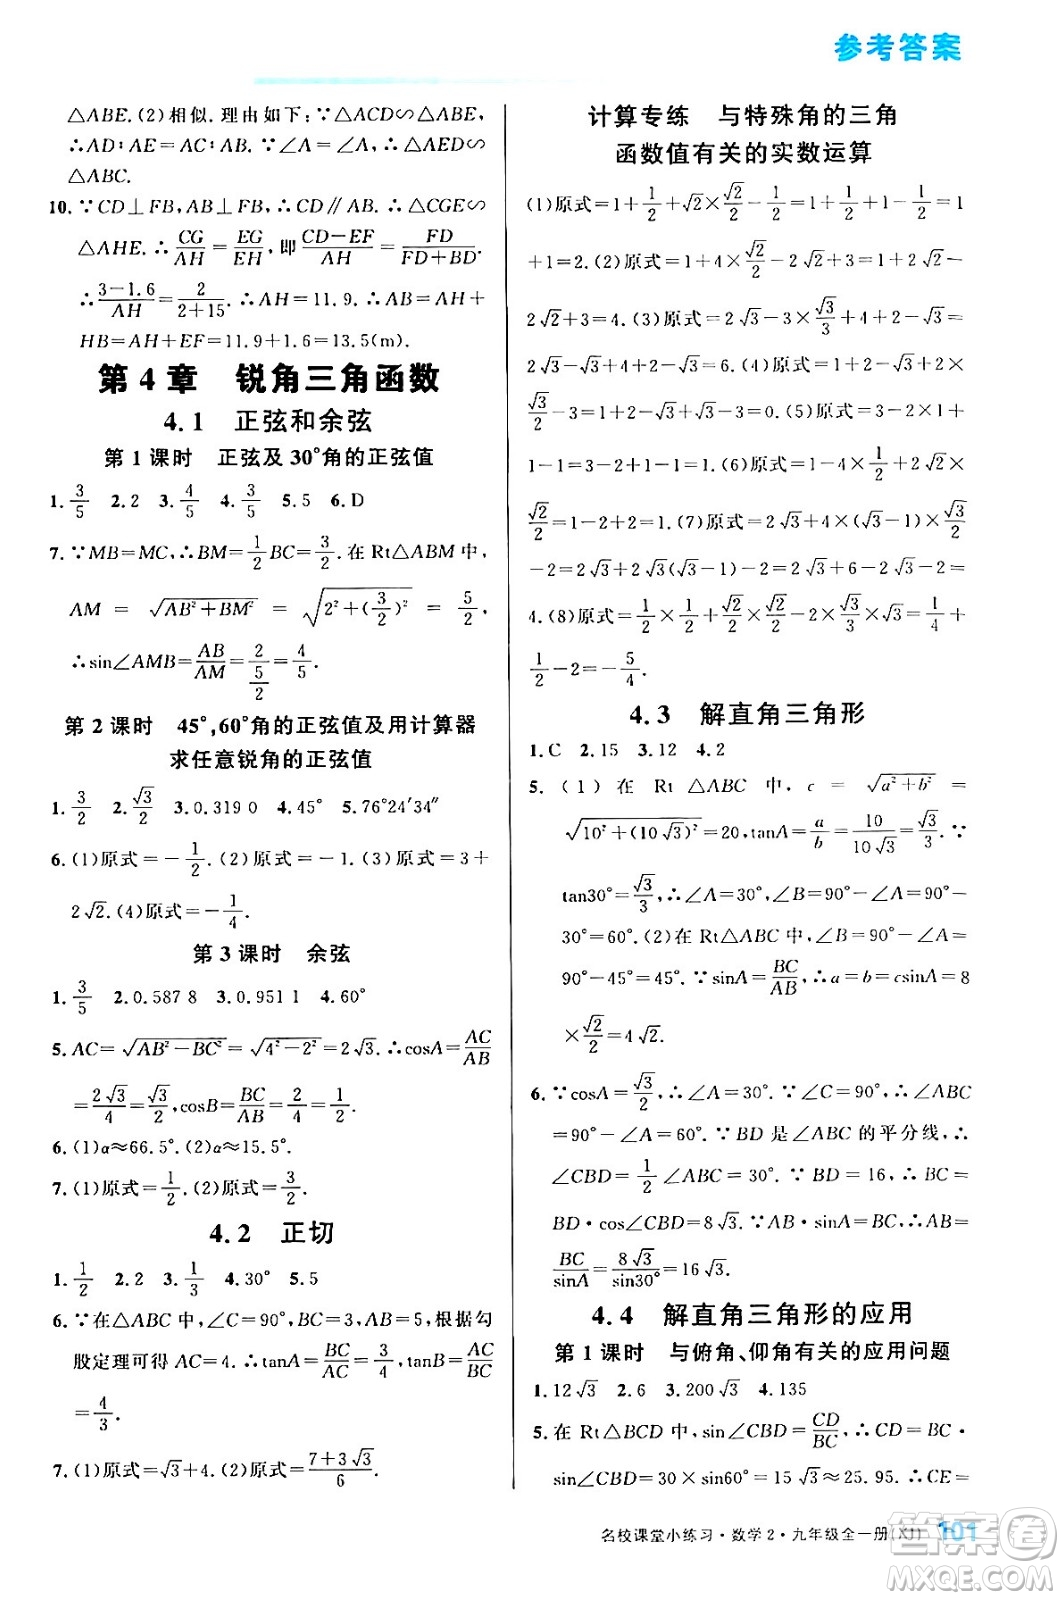 参考答案
△ABE.(2)相似.理由如下:∵△ACD∽△ABE,
∴AD:AE=AC:AB.∵∠A=∠A,∴△AED∽
△ABC.
10.∵CD⊥FB,AB⊥FB,∴CD∥AB.∴△CGE∽
△AHE.∴CG/AH=EG/EH,即(CD-EF)/AH=FD/(FD+BD).
∴(3-1.6)/AH=2/(2+15).∴AH=11.9.∴AB=AH+
HB=AH+EF=11.9+1.6=13.5(m).
第4章 锐角三角函数
4.1 正弦和余弦
第1课时 正弦及30°角的正弦值
1.3/5 2.2 3.4/5 4.3/5 5.5 6.D
7.∵MB=MC,∴BM=1/2BC=3/2.在Rt△ABM中,
AM=√(AB²+BM²)=√(2²+(3/2)²)=5/2,
∴sin∠AMB=AB/AM=2/(5/2)=4/5.
第2课时 45°,60°角的正弦值及用计算器
求任意锐角的正弦值
1.3/2 2.√3/2 3.0.319 0 4.45° 5.76°24′34″
6.(1)原式=-1/2.(2)原式=-1.(3)原式=3+
2√2.(4)原式=-1/4.
第3课时 余弦
1.3/5 2.0.587 8 3.0.951 1 4.60°
5.AC=√(AB²-BC²)=√(4²-2²)=2√3.∴cosA=AC/AB
=2√3/4=√3/2,cosB=BC/AB=2/4=1/2.
6.(1)α≈66.5°.(2)α≈15.5°.
7.(1)原式=1/2.(2)原式=3/2.
4.2 正切
1.1/2 2.2 3.1/3 4.30° 5.5
6.∵在△ABC中,∠C=90°,BC=3,AB=5,根据勾
股定理可得AC=4.∴tanA=BC/AC=3/4,tanB=AC/BC
=4/3.
7.(1)原式=√3+4.(2)原式=(7+3√3)/6.
计算专练 与特殊角的三角
函数值有关的实数运算
(1)原式=1+1/2+√2×√2/2=1+1/2+1/2=1
+1=2.(2)原式=1+4×√2/2-2√2+2=1+2√2-
2√2+3=4.(3)原式=2√3-3×√3/3+1+2-√3=
2√3-√3-√3+3=3.(4)原式=6×√3/2-2√3-
√3/2-3=2√3-2√3+3-3=0.(5)原式=√2×√2/2-1+
1-1=1-1+1-1=0.(6)原式=4×1/2-2√2×
√2/2=1-2+2=1.(7)原式=2√3+4×(√3-1)×√3/2
-2=2√3+2√3(√3-1)-2=2√3+6-2√3-2=
4.(8)原式=1/2×1/2+√2/2×√2/2-2×√3/3×√3=1/4+
1/2-2=-5/4.
4.3 解直角三角形
1.C 2.15 3.12 4.2
5.(1)在Rt△ABC中,c=√(a²+b²)=
√(10²+(10√3)²)=20,tanA=a/b=10/(10√3)=√3/3.∵
tan30°=√3/3,∴∠A=30°,∠B=90°-∠A=90°-
30°=60°.(2)在Rt△ABC中,∠B=90°-∠A=
90°-45°=45°.∵sinA=BC/AB,∴a=b=csinA=8
×√2/2=4√2.
6.∵cosA=√3/2,∴∠A=30°.∵∠C=90°,∴∠ABC
=90°-∠A=60°.∵BD是∠ABC的平分线,∴
∠CBD=1/2∠ABC=30°.∵BD=16,∴BC=
BD·cos∠CBD=8√3.∵AB·sinA=BC,∴AB=
BC/sinA=8√3/sin30°=16√3.
4.4 解直角三角形的应用
第1课时 与俯角、仰角有关的应用问题
1.12√3 2.6 3.200√3 4.135
5.在Rt△BCD中,sin∠CBD=CD/BC,∴CD=BC·
sin∠CBD=30×sin60°=15√3≈25.95.∴CE=
名校课堂小练习·数学2·九年级全一册(XJ) 101
答案圈
MXQE.COM